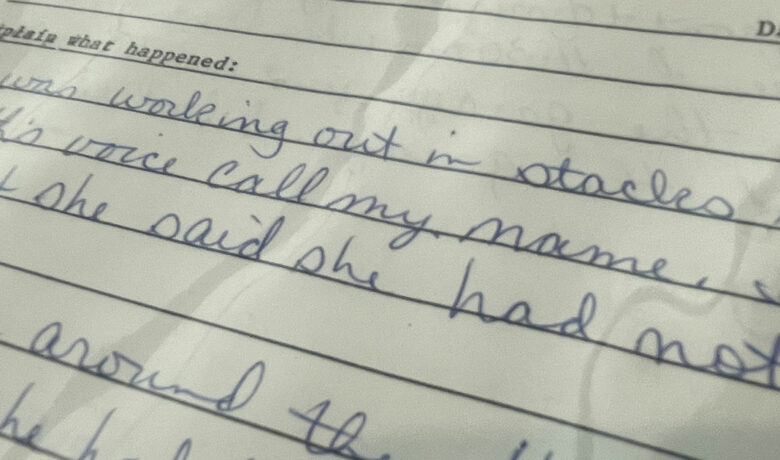 D
plain what happened:
was working out in stacks
's voice call my name.
she said she had not
around the
he h